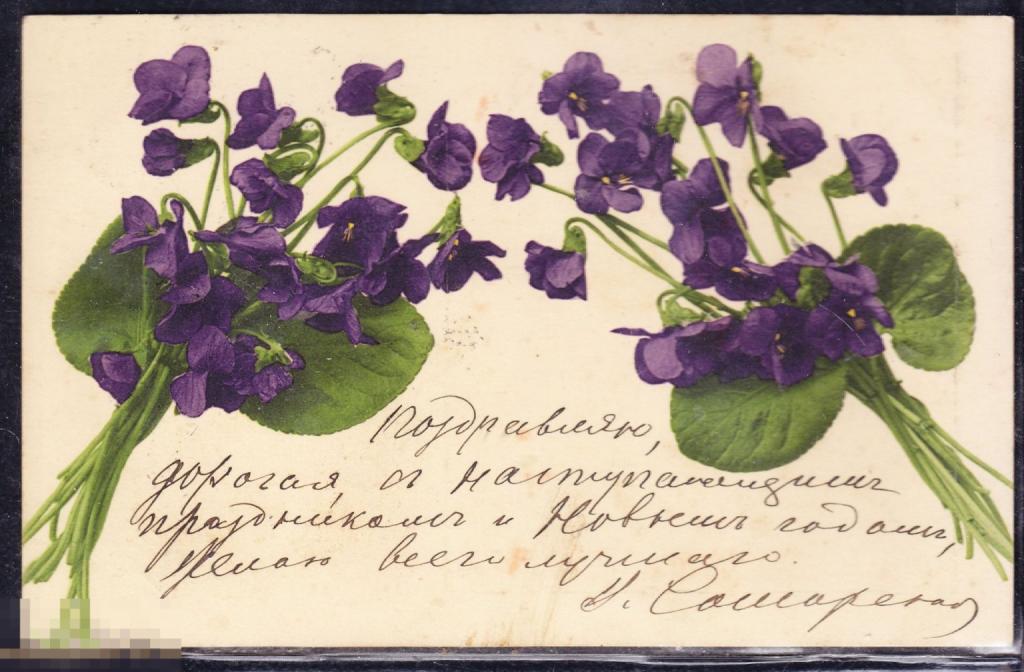 Поздравляю,
дорогая, съ наступающимъ
праздникомъ и Новымъ годомъ,
Желаю всего лучшаго.